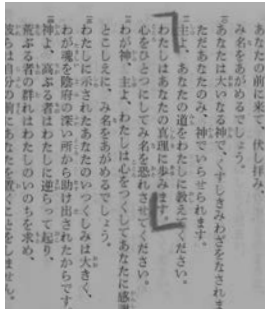 あなたの前に来て、伏し拝み、
み名をあがめるでしょう。
10あなたは大いなる神で、くすしきみわざをなされます
ただあなたのみ、神でいらせられます。
11主よ、あなたの道をわたしに教えてください。
わたしはあなたの真理に歩みます。
心をひとつにしてみ名を恐れさせてください。
12わが神、主よ、わたしは心をつくしてあなたに感謝
とこしえに、み名をあがめるでしょう。
13わたしに示されたあなたのいつくしみは大きく、
わが魂を陰府の深い所から助け出されたからです。
14神よ、高ぶる者はわたしに逆らって起り、
荒ぶる者の群れはわたしのいのちを求め、
彼らは自分の前にあなたを置くことをしません。